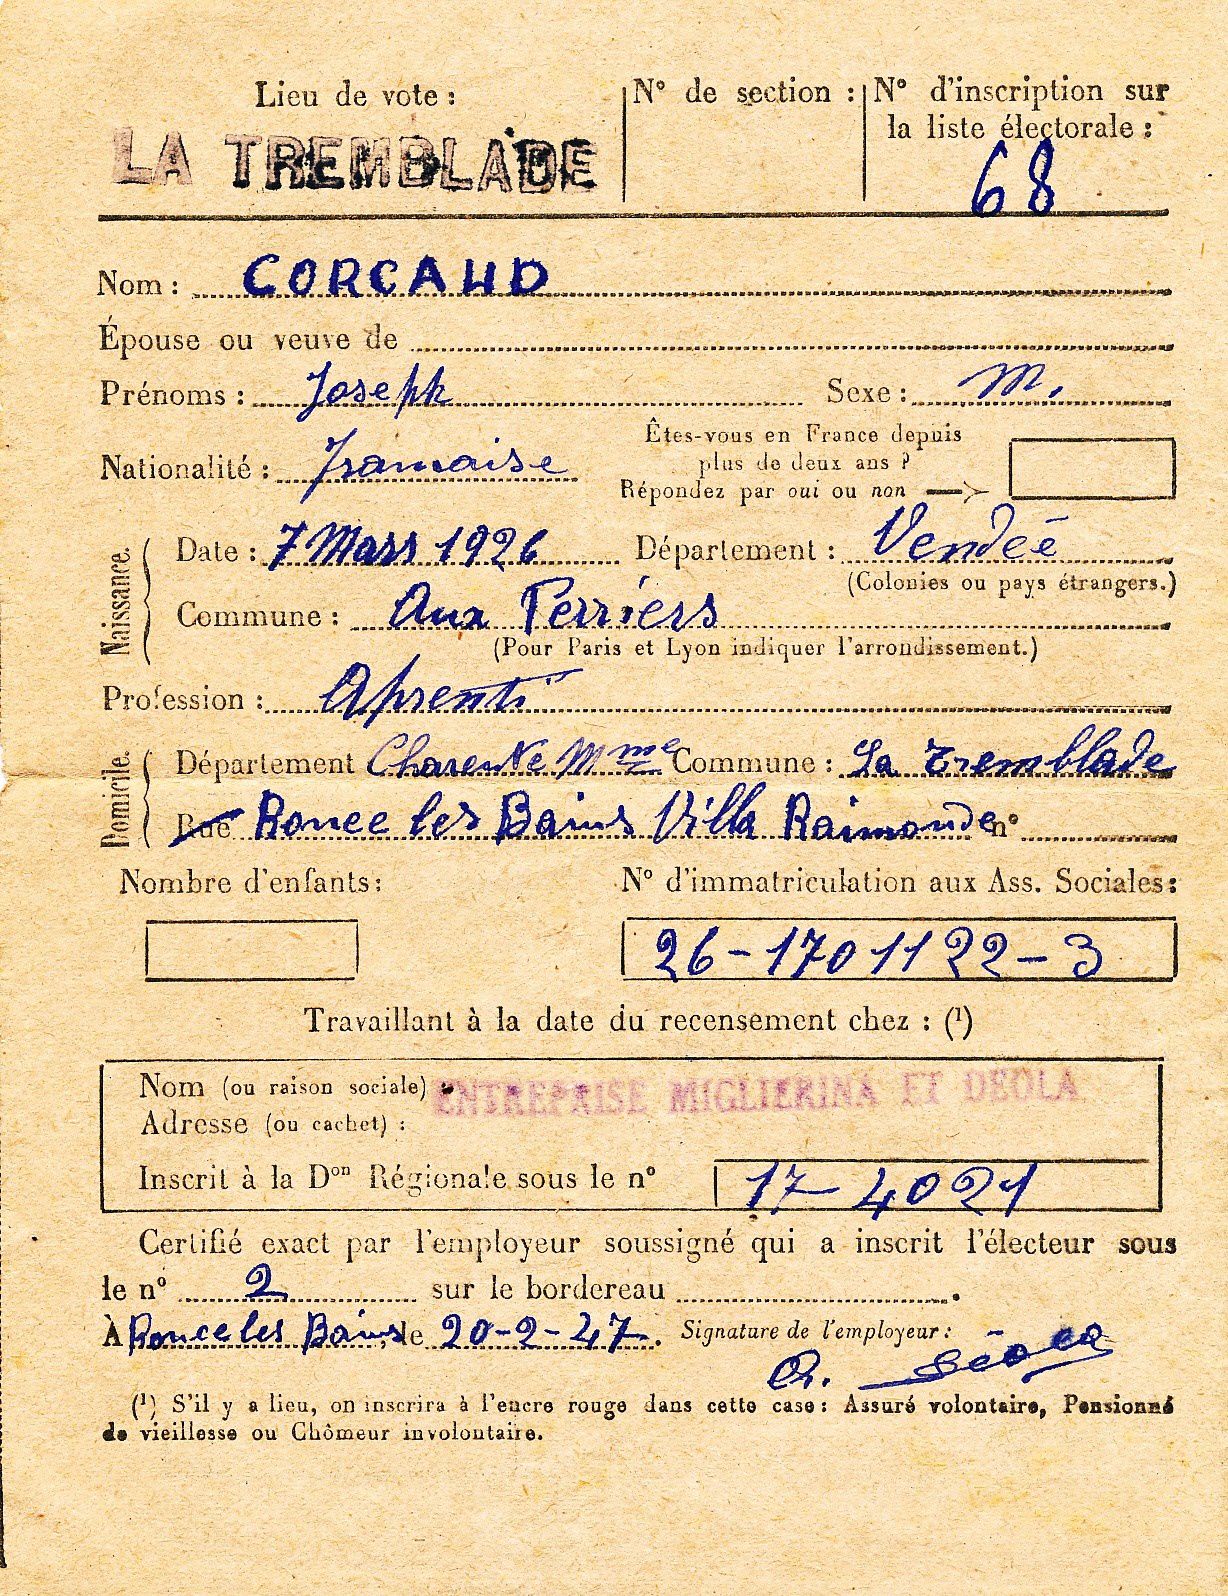 Lieu de vote :
LA TREMBLADE
N° de section :
N° d'inscription sur
la liste électorale :
68
Nom : CORCAUD
Épouse ou veuve de
Prénoms : Joseph Sexe : M.
Nationalité : Francaise
Êtes-vous en France depuis
plus de deux ans ?
Répondez par oui ou non
Naissance.
Date : 7 Mars 1926 Département : Vendée
(Colonies ou pays étrangers.)
Commune : Aux Perriers
(Pour Paris et Lyon indiquer l'arrondissement.)
Profession : Aprenti
Domicile.
Département Charente Mme Commune : La Tremblade
Rue Ronce les Bains Villa Raimonde n°
Nombre d'enfants :
N° d'immatriculation aux Ass. Sociales :
26-1701122-3
Travaillant à la date du recensement chez : (¹)
Nom (ou raison sociale) ENTREPRISE MIGLIERINA ET DEOLA
Adresse (ou cachet) :
Inscrit à la Don Régionale sous le n° 17-4021
Certifié exact par l'employeur soussigné qui a inscrit l'électeur sous
le n° 2 sur le bordereau .
À Ronce les Bains, le 20-2-47. Signature de l'employeur :
Déola
(¹) S'il y a lieu, on inscrira à l'encre rouge dans cette case : Assuré volontaire, Pensionné
de vieillesse ou Chômeur involontaire.